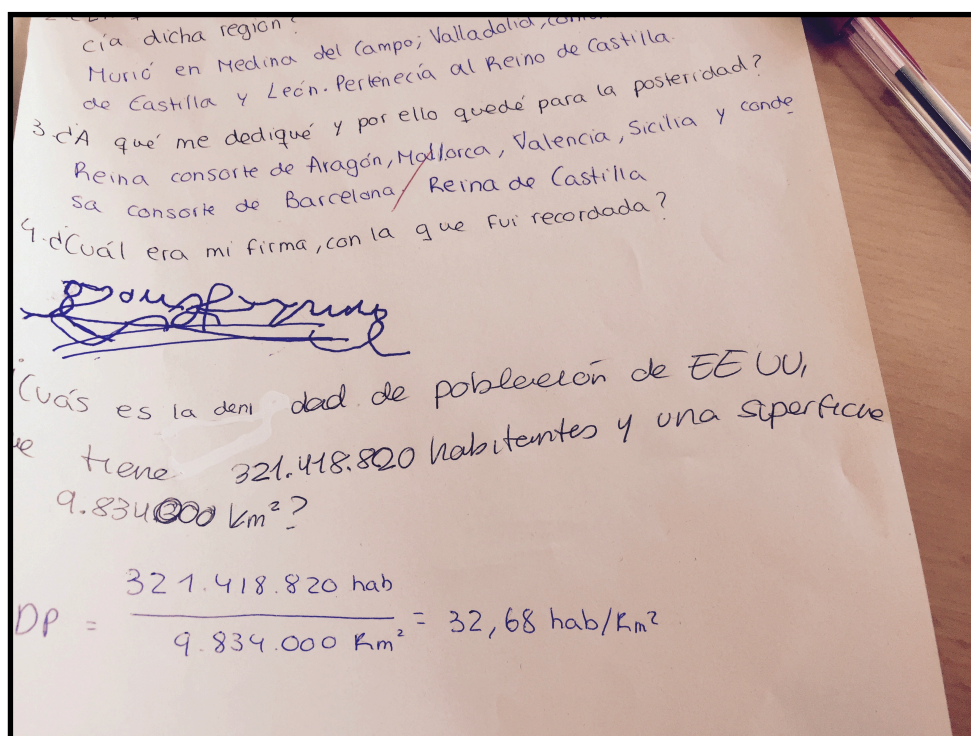 cía dicha región?
Murió en Medina del Campo; Valladolid,
de Castilla y León. Pertenecía al Reino de Castilla.
3. ¿A qué me dediqué y por ello quedé para la posteridad?
Reina consorte de Aragón, Mallorca, Valencia, Sicilia y conde
sa consorte de Barcelona / Reina de Castilla
4. ¿Cuál era mi firma, con la que fui recordada?
¿Cuás es la deni dad de población de EE UU,
tiene 321.418.820 habitantes y una superficie
9.834000 Km²?
321.418.820 hab
DP = = 32,68 hab/Km²
9.834.000 Km²